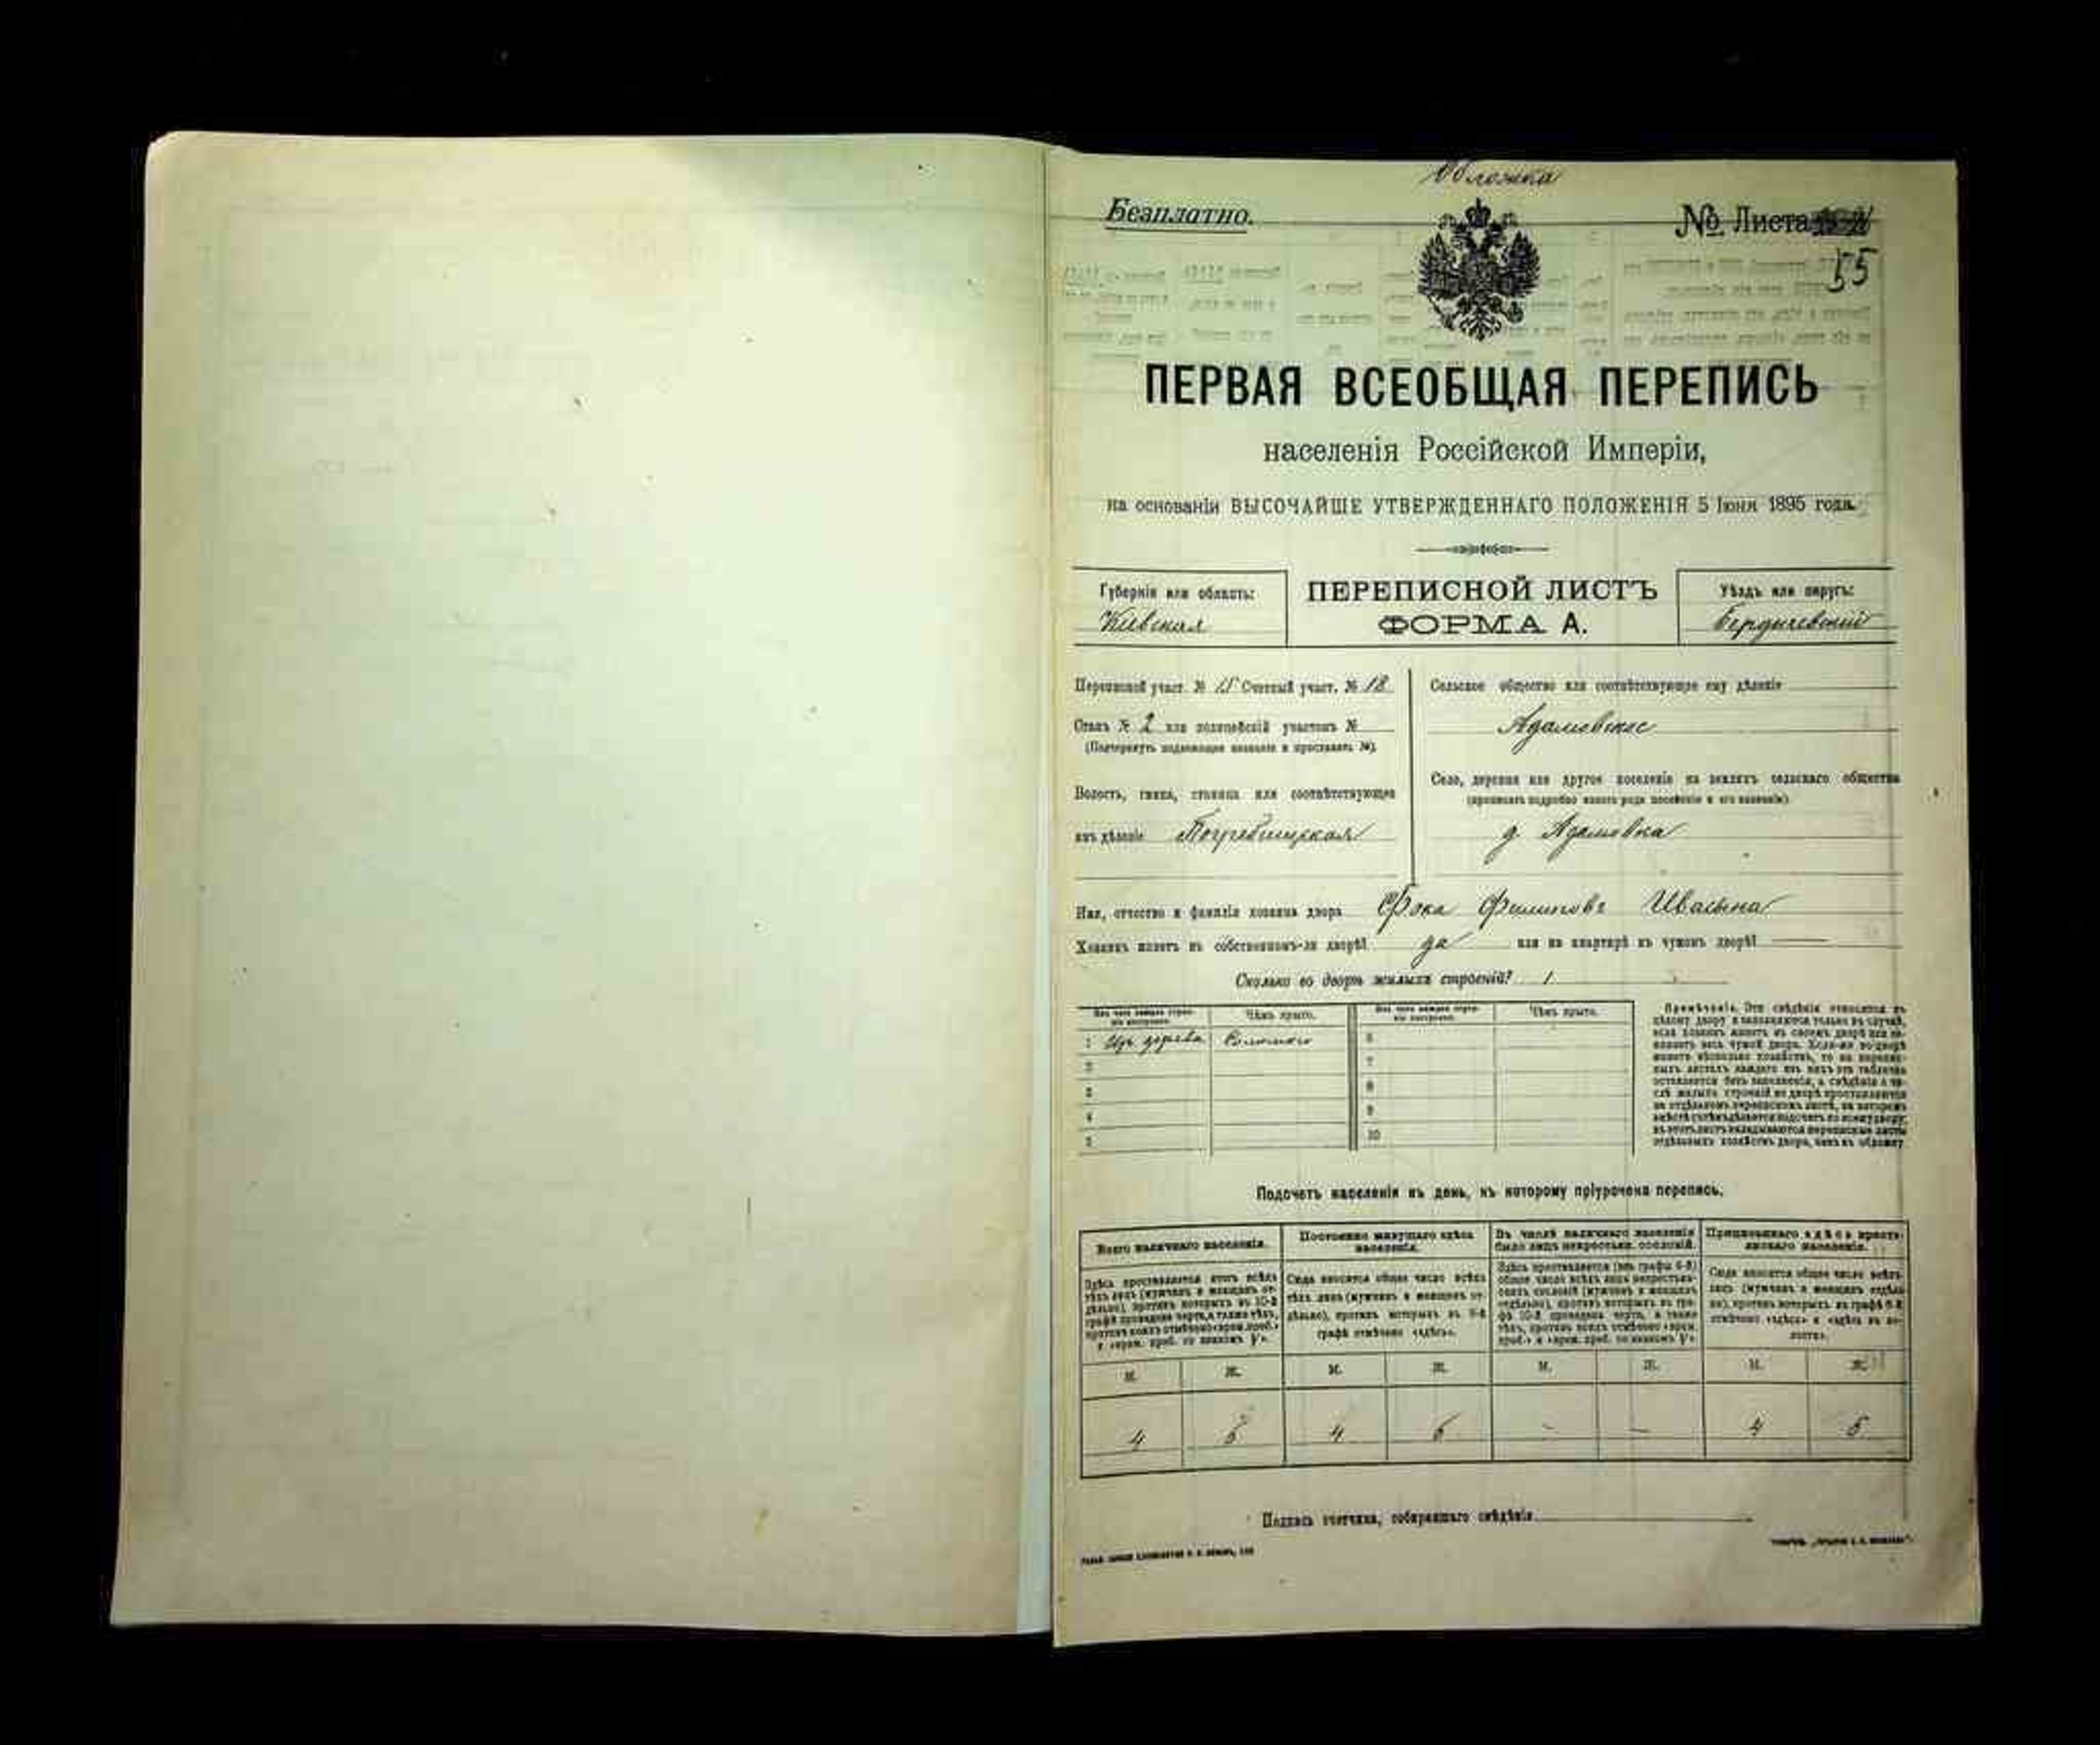 Обложка
Безплатно.
№ Листа
55
ПЕРВАЯ ВСЕОБЩАЯ ПЕРЕПИСЬ
населенія Россійской Имперіи,
на основаніи ВЫСОЧАЙШЕ УТВЕРЖДЕННАГО ПОЛОЖЕНІЯ 5 Іюня 1895 года.
Губернія или область:
Кіевская
ПЕРЕПИСНОЙ ЛИСТЪ
ФОРМА А.
Уѣздъ или округъ:
Бердичевскій
Переписной участ. № 15 Счетный участ. № 18
Станъ № 2 или полицейскій участокъ №
(Подчеркнуть подлежащее названіе и проставить №).
Волость, гмина, станица или соотвѣтствующее
имъ дѣленіе Погребищская
Сельское общество или соотвѣтствующее ему дѣленіе
Адамовское
Село, деревня или другое поселеніе на земляхъ сельскаго общества
(прописать подробно какого рода поселеніе и его названіе).
д. Адамовка
Имя, отчество и фамилія хозяина двора Фока Филиповъ
Хозяинъ живетъ въ собственномъ-ли дворѣ? да или на квартирѣ въ чужомъ дворѣ?
Сколько во дворѣ жилыхъ строеній? 1
Изъ чего каждое строеніе построено. Чѣмъ крыто. Изъ чего каждое строеніе построено. Чѣмъ крыто.
1 Изъ дерева Соломою 6
2 7
3 8
4 9
5 10
Примѣчаніе. Эти свѣдѣнія относятся къ
цѣлому двору и заполняются только въ случаѣ,
если хозяинъ живетъ въ своемъ дворѣ или занимаетъ весь чужой дворъ. Если-же во дворѣ
живетъ нѣсколько хозяйствъ, то на переписныхъ листахъ каждаго изъ нихъ эта табличка
остается безъ заполненія, а свѣдѣнія о числѣ жилыхъ строеній во дворѣ проставляются
на отдѣльномъ переписномъ листѣ, на которомъ
вмѣстѣ съ тѣмъ дѣлается подсчетъ по всему двору;
въ этотъ листъ вкладываются переписные листы
отдѣльныхъ хозяйствъ двора, какъ въ обложку.
Подсчетъ населенія въ день, къ которому пріурочена перепись.
Всего наличнаго населенія.
Здѣсь проставляется итогъ всѣхъ
тѣхъ лицъ (мужчинъ и женщинъ отдѣльно), противъ которыхъ въ 10-й
графѣ проведена черта, а также тѣхъ,
противъ коихъ отмѣчено «врем. преб.»
Постоянно живущаго здѣсь населенія.
Сюда вносится общее число всѣхъ
тѣхъ лицъ (мужчинъ и женщинъ отдѣльно), противъ которыхъ въ 9-й
графѣ отмѣчено «здѣсь».
Въ числѣ наличнаго населенія
было лицъ некрестьян. сословій.
Здѣсь проставляется (изъ графы 4-й)
общее число всѣхъ лицъ некрестьянскихъ сословій (мужчинъ и женщинъ
отдѣльно), противъ которыхъ въ графѣ 10-й проведена черта, а также
тѣхъ, противъ коихъ отмѣчено «врем.
Приписаннаго здѣсь крестьянскаго населенія.
Сюда вносится общее число всѣхъ
лицъ (мужчинъ и женщинъ отдѣльно), противъ которыхъ въ графѣ 8-й
отмѣчено «здѣсь» и «здѣсь въ волости».
М. Ж. М. Ж. М. Ж. М. Ж.
4 4 6 - — 4 5
Подпись счетчика, собиравшаго свѣдѣнія